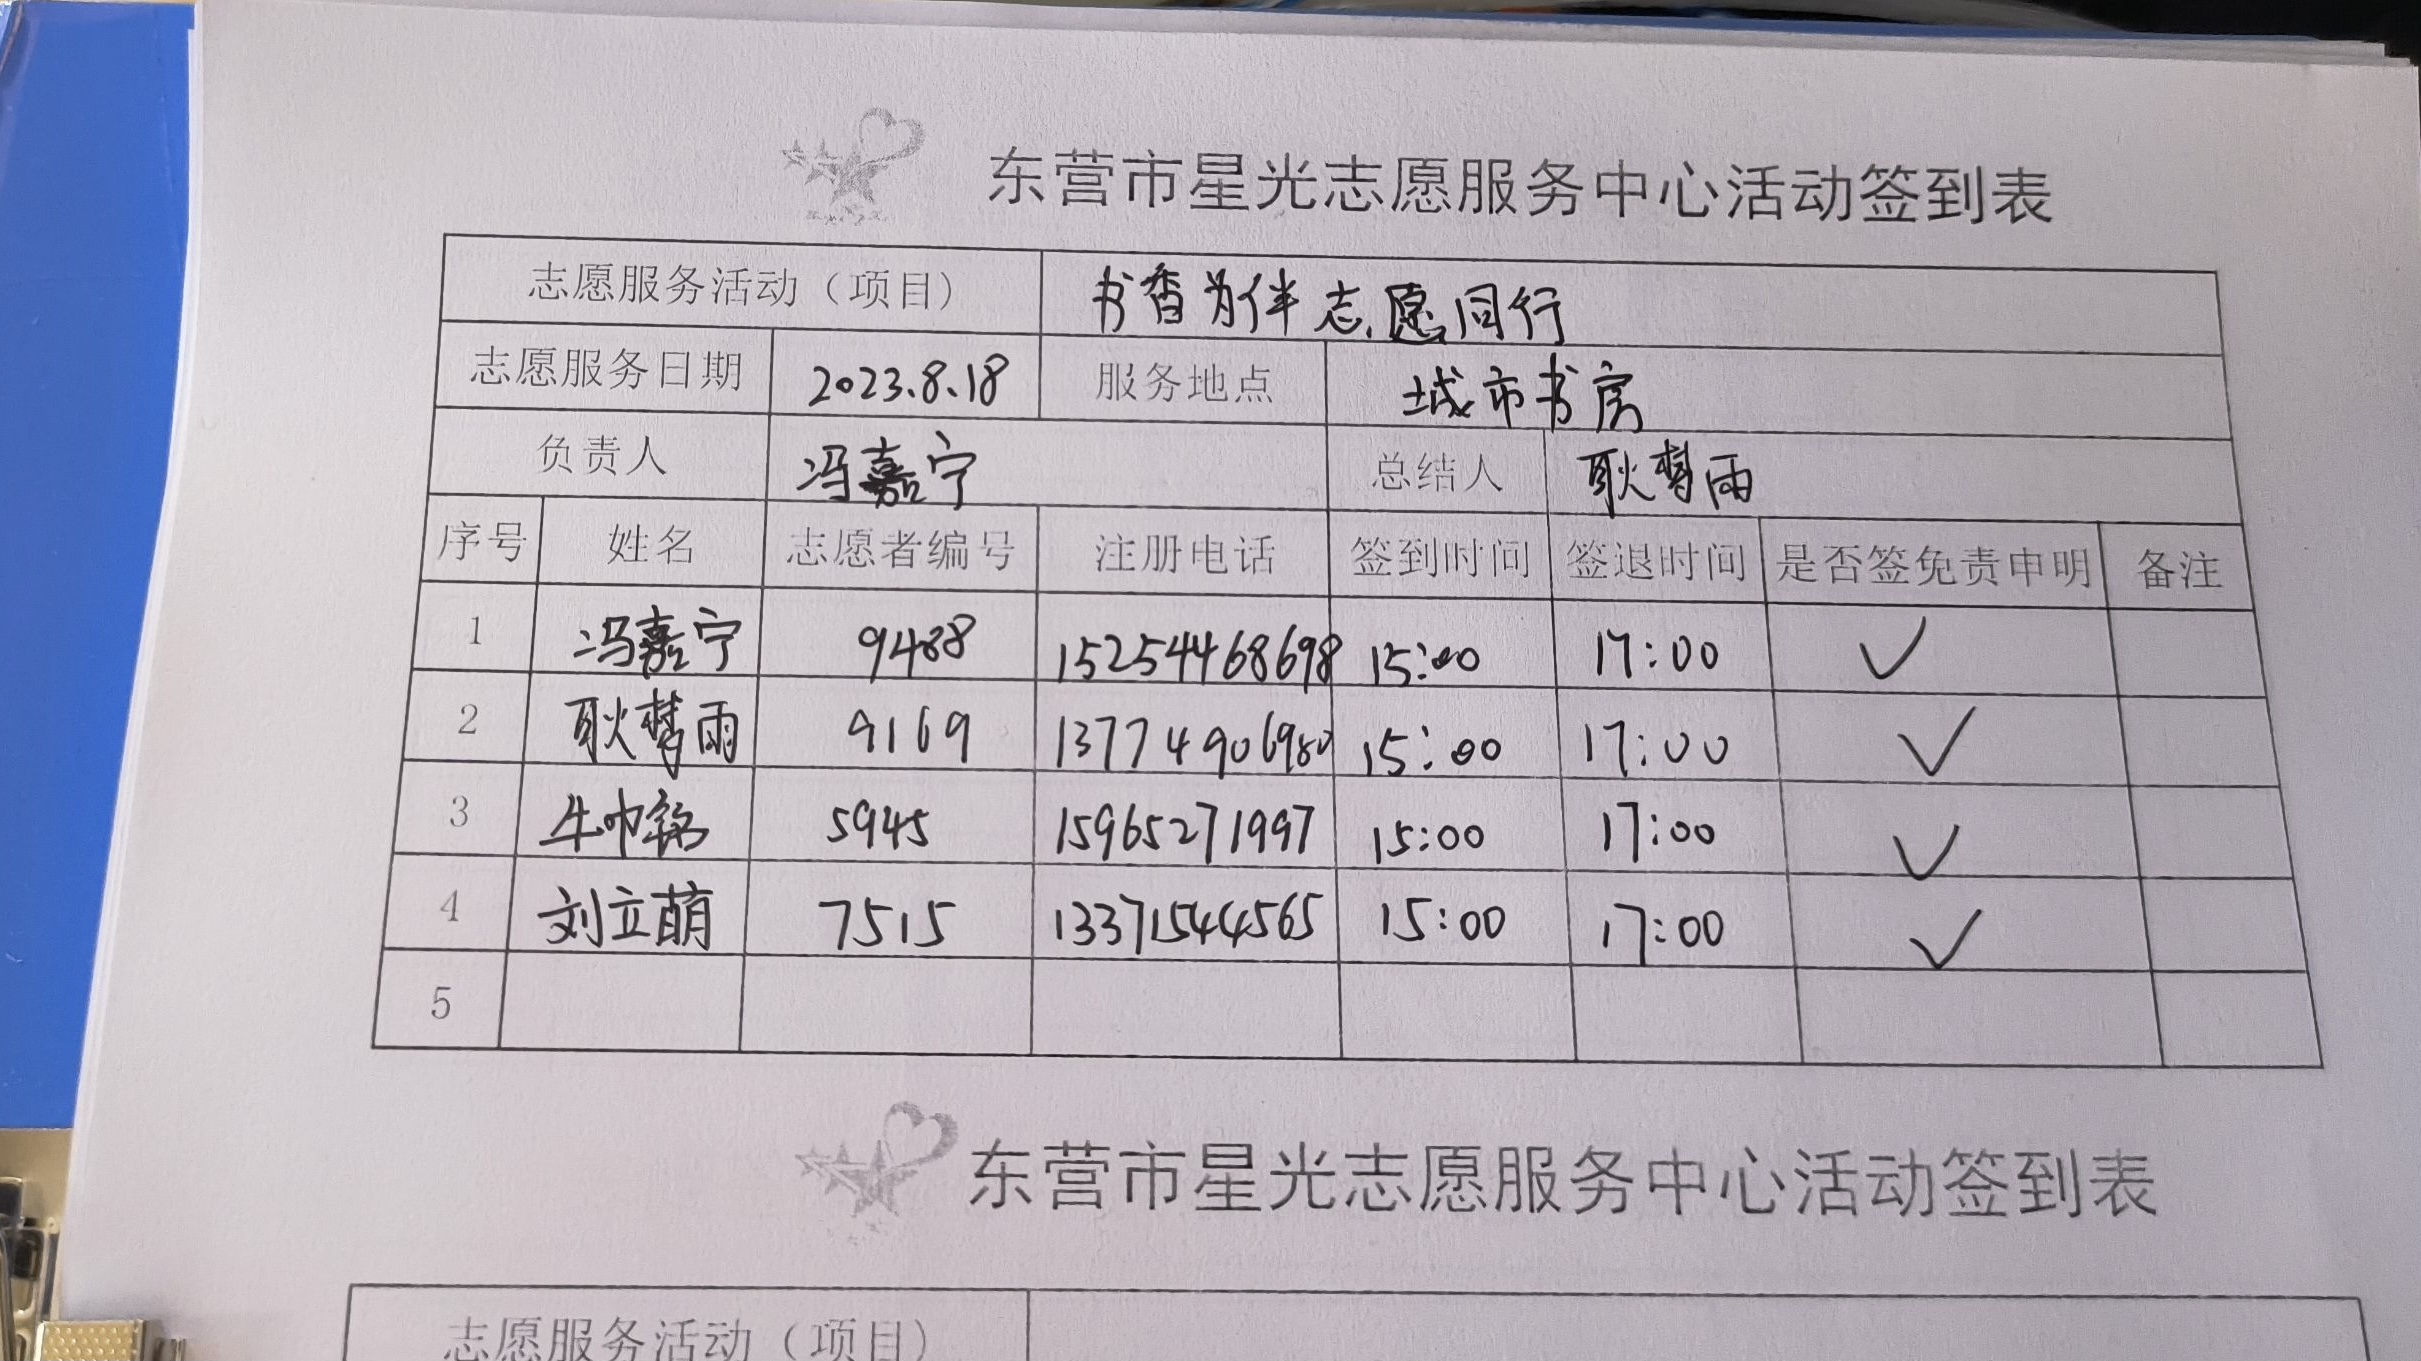 东营市星光志愿服务中心活动签到表
志愿服务活动（项目） 书香为伴志愿同行
志愿服务日期 2023.8.18 服务地点 城市书房
负责人 冯嘉宁 总结人 耿梦雨
序号 姓名 志愿者编号 注册电话 签到时间 签退时间 是否签免责申明 备注
1 冯嘉宁 9488 15254468698 15:00 17:00 ✓
2 耿梦雨 9169 13774906980 15:00 17:00 ✓
3 5945 15965271997 15:00 17:00 ✓
4 刘立萌 7515 13371544565 15:00 17:00 ✓
5
东营市星光志愿服务中心活动签到表
志愿服务活动（项目）